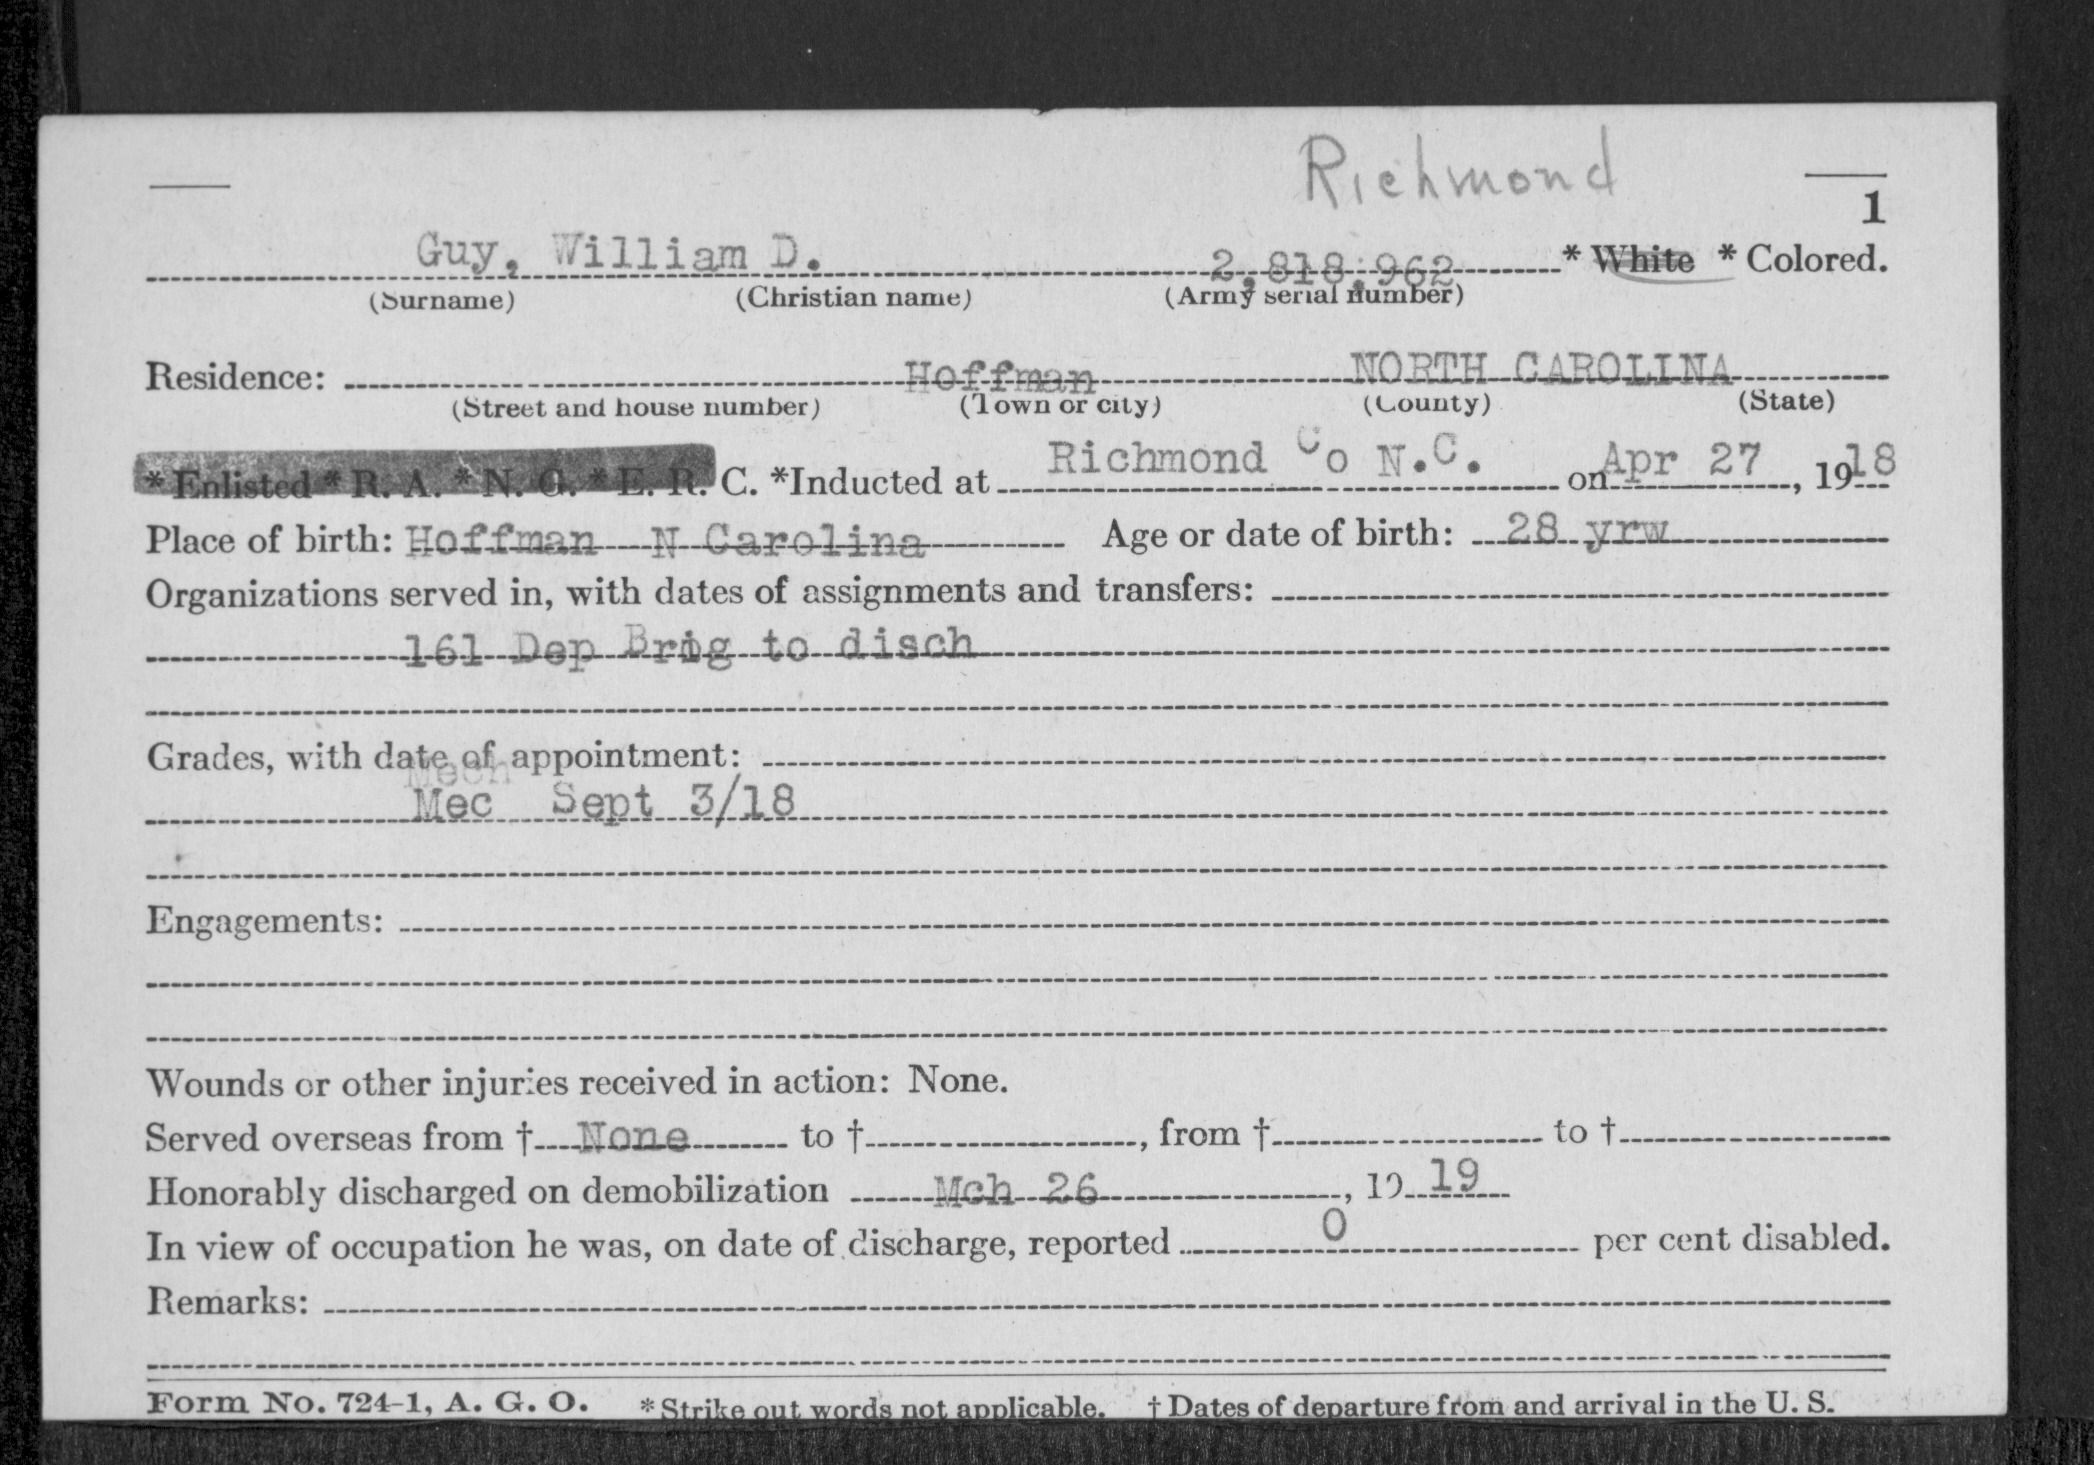 Richmond
1
Guy, William D. 2,818,962 * White * Colored.
(Surname) (Christian name) (Army serial number)
Residence: Hoffman NORTH CAROLINA
(Street and house number) (Town or city) (County) (State)
* Enlisted * R. A. * N. G. * E. R. C. *Inducted at Richmond Co N.C. on Apr 27, 1918
Place of birth: Hoffman N Carolina Age or date of birth: 28 yrw
Organizations served in, with dates of assignments and transfers:
161 Dep Brig to disch
Grades, with date of appointment:
Mech
Mec Sept 3/18
Engagements:
Wounds or other injuries received in action: None.
Served overseas from † None to †, from † to †
Honorably discharged on demobilization Mch 26, 19 19
In view of occupation he was, on date of discharge, reported 0 per cent disabled.
Remarks:
Form No. 724-1, A. G. O. * Strike out words not applicable. † Dates of departure from and arrival in the U. S.